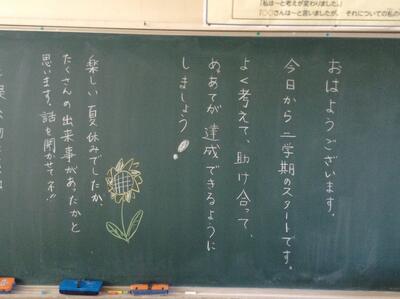 「私は〜と考えが変わりました。」
「○○さんは〜と言いましたが、それについての私の
おはようございます。
今日から二学期のスタートです。
よく考えて、助け合って、
めあてが達成できるように
しましょう!
楽しい夏休みでしたか、
たくさんの出来事があったかと
思います。話を聞かせてネ!!